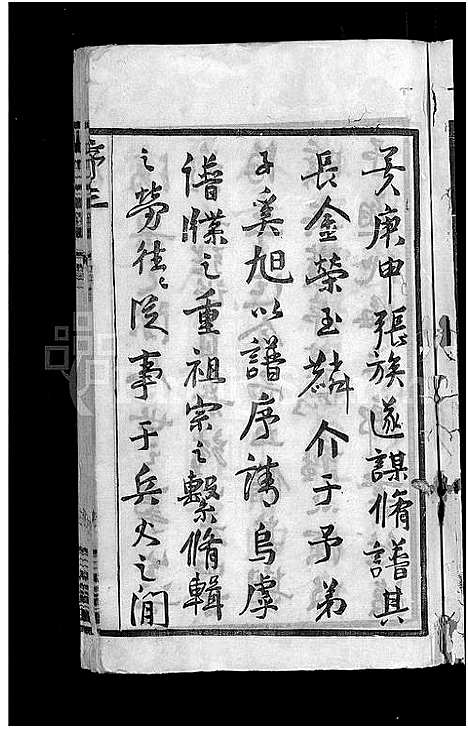 庚申張族遂謀脩譜其
長金榮玉麟介于予弟
子奚旭以譜序請烏虖
譜牒之重祖宗之繫脩輯
之勞往〻從事于兵火之間
序三